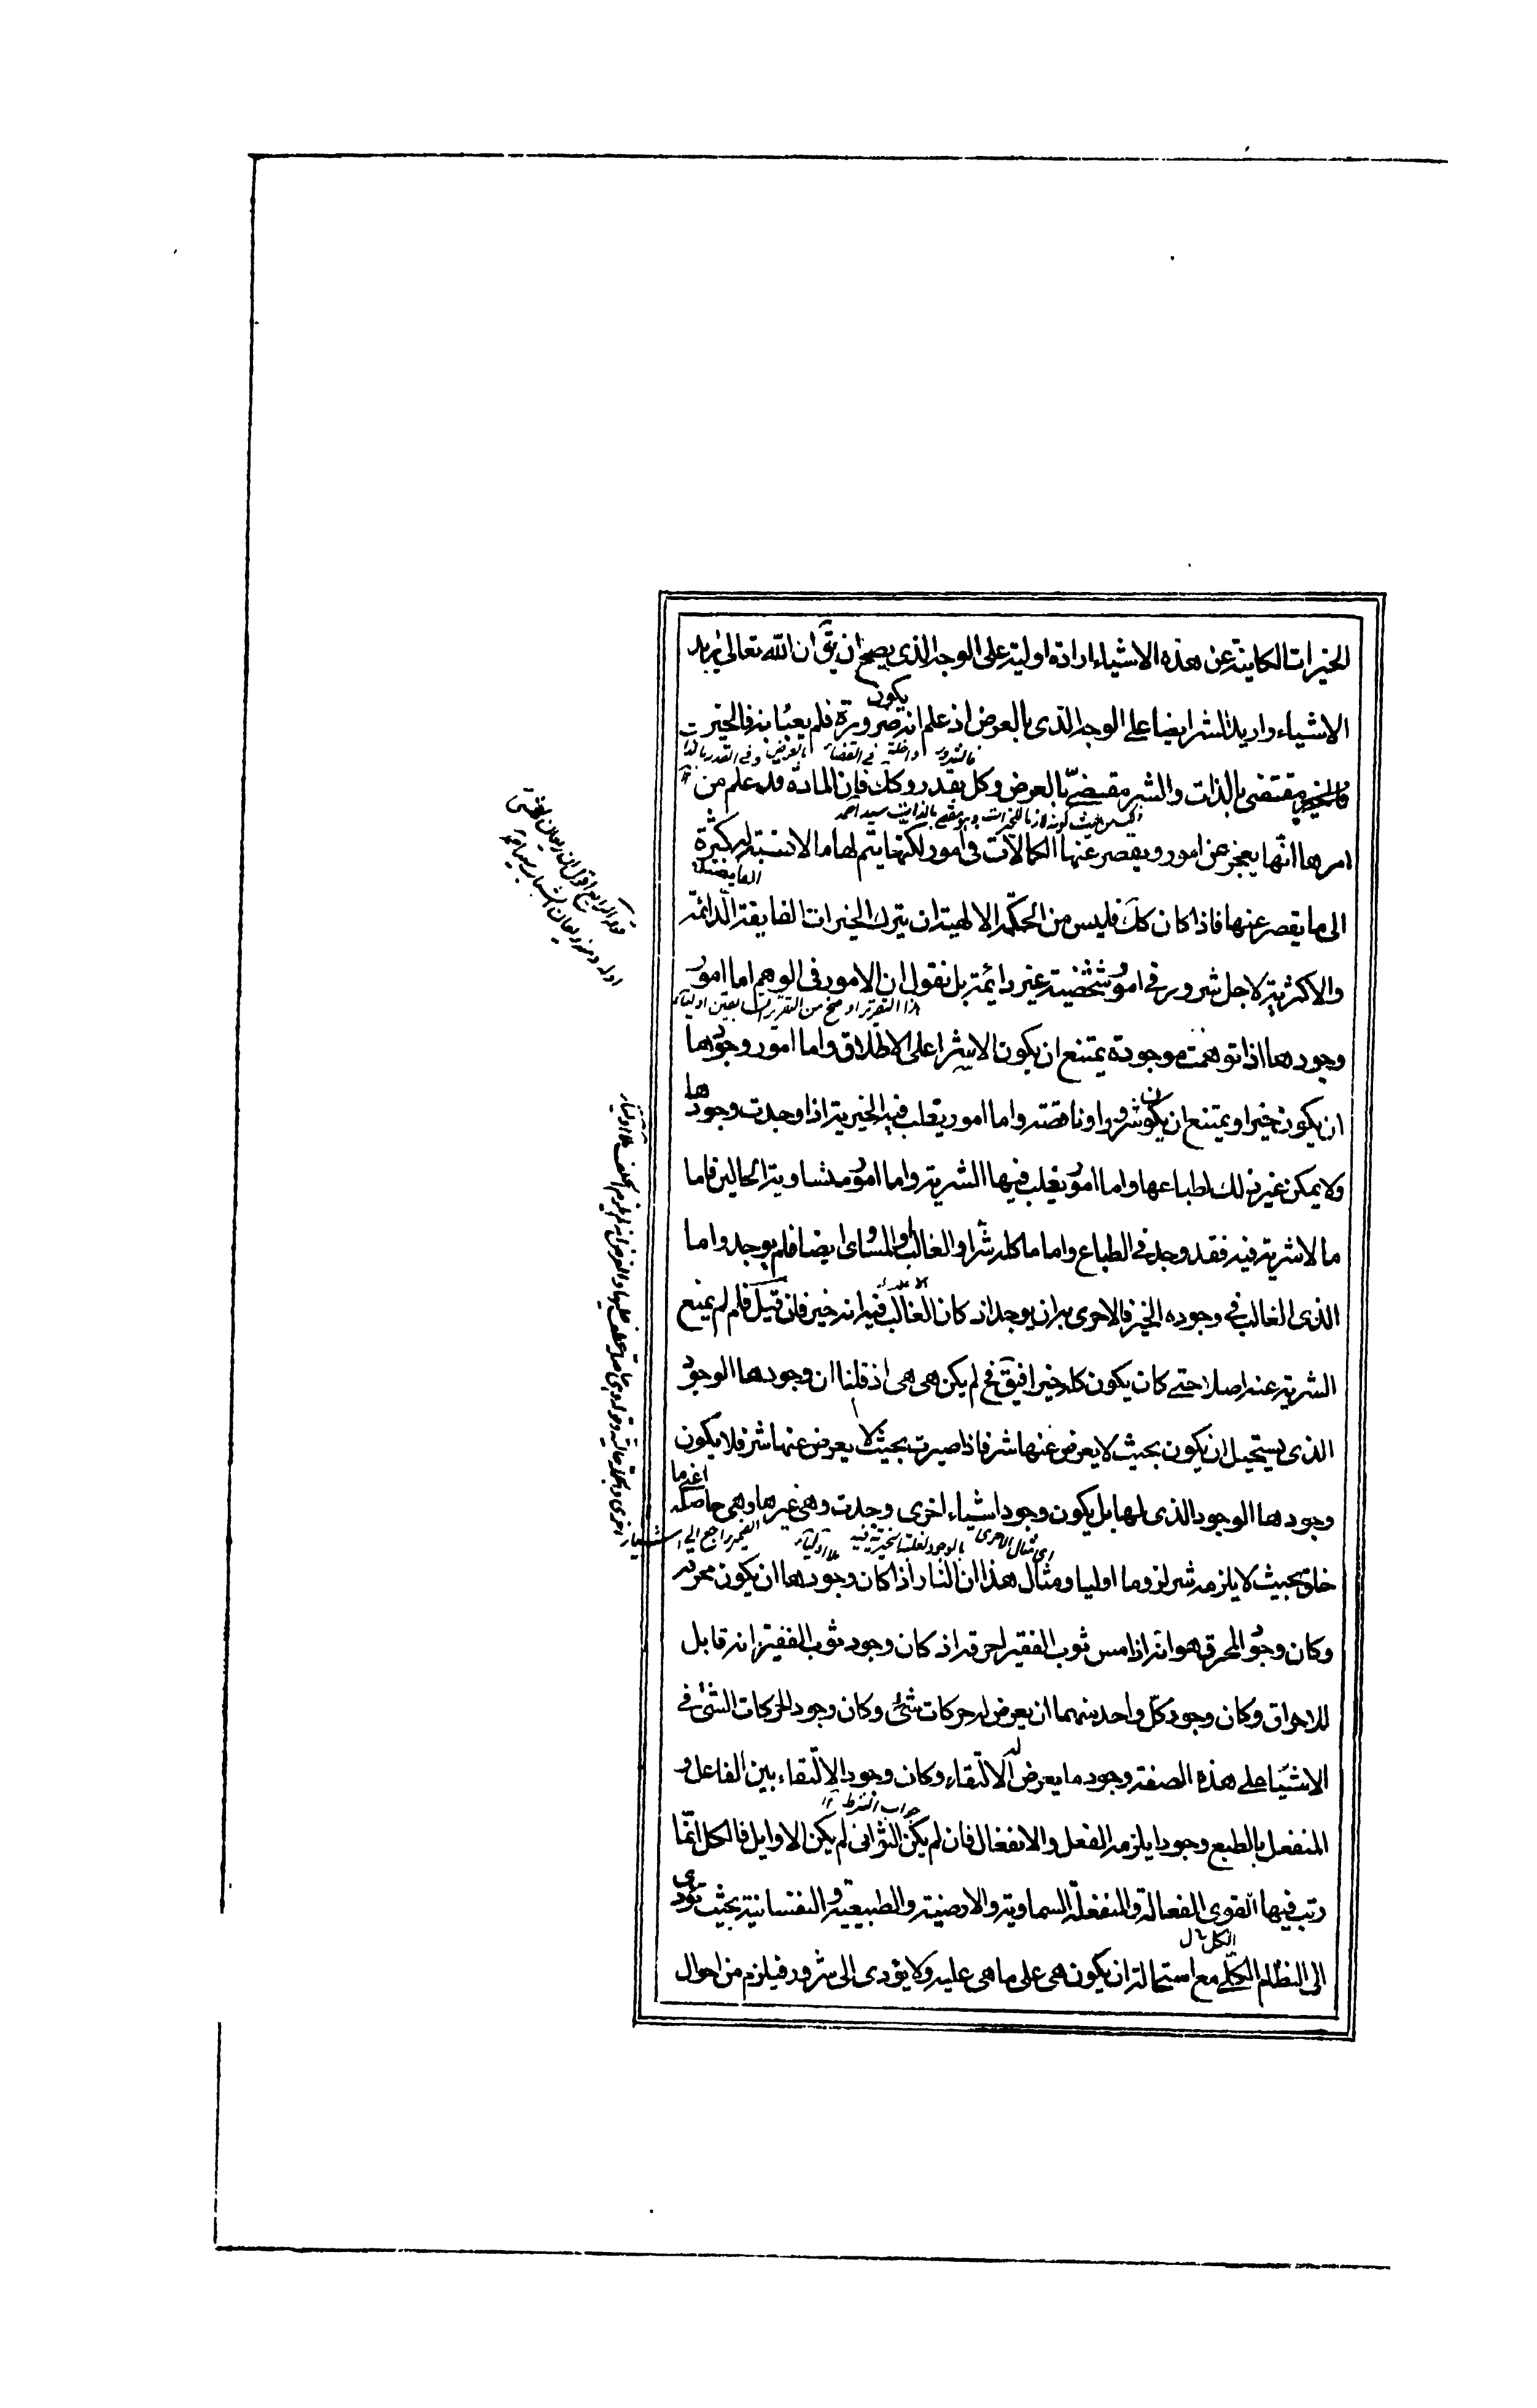 الخيرات الكاينة عن هذه الاشياء ارادة اولية على الوجه الذى يصح ان يق ان الله تعالى يريد
يكون
الاشياء واريد الشر ايضا على الوجه الذى بالعرض اذ علم انه ضرورة فلم يعبا به فالخير
فالشرور داخلة فى القضاء بالعرض وفى القدر بالذات
فالخير مقتضى بالذات والشر مقتضى بالعرض وكل بقدر وكك فان المادة قد علم من
امرها انها يعجز عن امور ويقصر عنها الكمالات فى امور لكنها يتم لها ما لا نسبة له كثرة
الفايضة
الى ما يقصر عنها فاذا كان كك فليس من الحكمة الالهية ان يترك الخيرات الفايقة الدائمة
والاكثرية لاجل شرور فى امور شخصية غير دائمة بل نقول ان الامور فى الوهم اما امور
هذا التقرير اوضح من التقريرين السابقين
وجودها اذا توهمت موجودة يمتنع ان يكون الا شرا على الاطلاق واما امور وجودها
ان يكون خيرا ويمتنع ان يكون شرورا وناقصة واما امور يغلب فيه الخيرية اذا وجدت وجودها
ولا يمكن غير ذلك لطباعها واما امور يغلب فيها الشرية واما امور متساوية الحالين فاما
ما لا شرية فيه فقد وجد فى الطباع واما ما كله شر او الغالب او المساوى ايضا فلم يوجد واما
الذى الغالب فى وجوده الخير فالاحرى به ان يوجد اذ كان الغالب فيه انه خير فان قيل فلم لم يمنع
الشرية عنه اصلا حتى كان يكون كله خيرا فيق فح لم يكن هى هى اذ قلنا ان وجودها الوجود
الذى يستحيل ان يكون بحيث لا يعرض عنها شر فاذا صيرت بحيث لا يعرض عنها شر فلا يكون
وجودها الوجود الذى لها بل يكون وجود اشياء اخرى وجدت وهى غيرها وهى حاصلة
خلق بحيث لا يلزمه شر لزوما اوليا ومثال هذا ان النار اذا كان وجودها ان يكون محرقة
وكان وجود المحرق هو انه اذا مس ثوب الفقير احرقه اذ كان وجود ثوب الفقير انه قابل
للاحراق وكان وجود كل واحد منهما ان يعرض له حركات شتى وكان وجود الحركات الشتى فى
الاشياء على هذه الصفة وجود ما يعرض له الالتقاء وكان وجود الالتقاء بين الفاعل و
جواب الشرط
المنفعل بالطبع وجودا يلزمه الفعل والانفعال فان لم يكن الثوانى لم يكن الاوايل فالكل انما
رتب فيها القوى الفعالة والمنفعلة السماوية والارضية والطبيعية والنفسانية بحيث تؤدى
الى النظام الكلى مع استحالة ان يكون هى على ما هى عليه ولا يؤدى الى شرور فيلزم من احوال